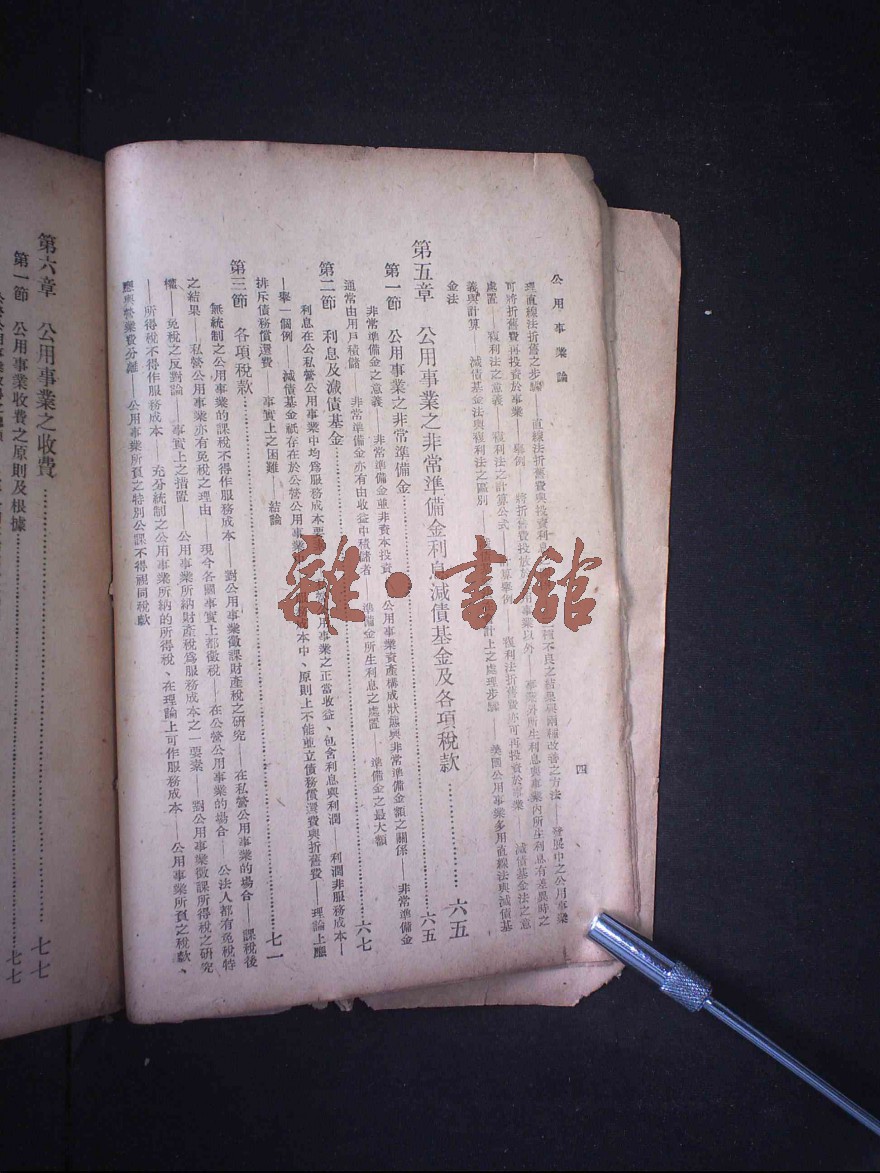 公用事業論
四
理直線法折舊之步驟——直線法折舊費與投資利息 種不良之結果與兩種改善之方法——發展中之公用事業
可將折舊費再投資於事業——舉例——將折舊費投放於 事業以外——事業外所生利息與事業內所生利息有差異時之
處置——複利法之意義——複利法之計算公式——計算舉例——複利法折舊費亦可再投資於事業——減債基金法之意
義與計算——減債基金法與複利法之區別—— 計上之處理步驟——美國公用事業多用直線法與減債基
金法
第五章 公用事業之非常準備金利息減債基金及各項稅款……六五
第一節 公用事業之非常準備金……六五
非常準備金之意義——非常準備金並非資本投資——公用事業資產構成狀態與非常準備金額之關係——非常準備金
通常由用戶積儲——非常準備金亦有由收益中積儲者——準備金所生利息之處置——準備金之最大額
第二節 利息及減債基金……六七
利息在公私營公用事業中均爲服務成本要素 用事業之正當收益、包含利息與利潤——利潤非服務成本——
舉一個例——減債基金祇存在於公營公用事業 成本中、原則上不能並立債務償還費與折舊費——理論上應
排斥債務償還費——事實上之困難——結論
第三節 各項稅款……七一
無統制之公用事業的課稅不得作服務成本——對公用事業徵課財產稅之研究——在私營公用事業的場合——課稅後
之結果——私營公用事業亦有免稅之理由——現今各國事實上都徵稅——在公營公用事業的場合——公法人都有免稅特
權——免稅之反對論——事實上之措置——公用事業所納財產稅爲服務成本之一要素——對公用事業徵課所得稅之研究
——所得稅不得作服務成本——充分統制之公用事業所納的所得稅、在理論上可作服務成本——公用事業所負之稅款、
應與營業費分離——公用事業所負之特別公課不得視同稅款
第六章 公用事業之收費……七七
第一節 公用事業收費之原則及根據……七七
雜·書館